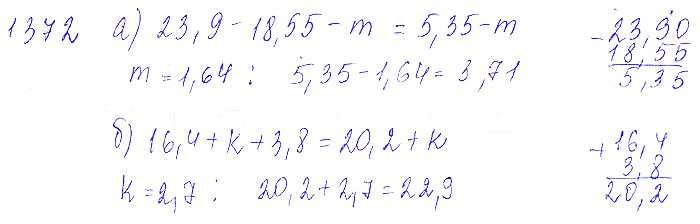 1372 а) 23,9 - 18,55 - m = 5,35 - m
m = 1,64 ; 5,35 - 1,64 = 3,71
- 23,90
18,55
5,35
б) 16,4 + k + 3,8 = 20,2 + k
k = 2,7 ; 20,2 + 2,7 = 22,9
+ 16,4
3,8
20,2